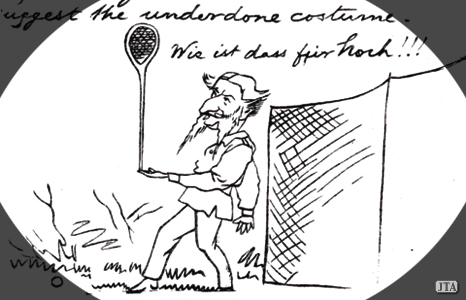 uggest the underdone costume.
Wie ist dass für hoch!!!
JTA